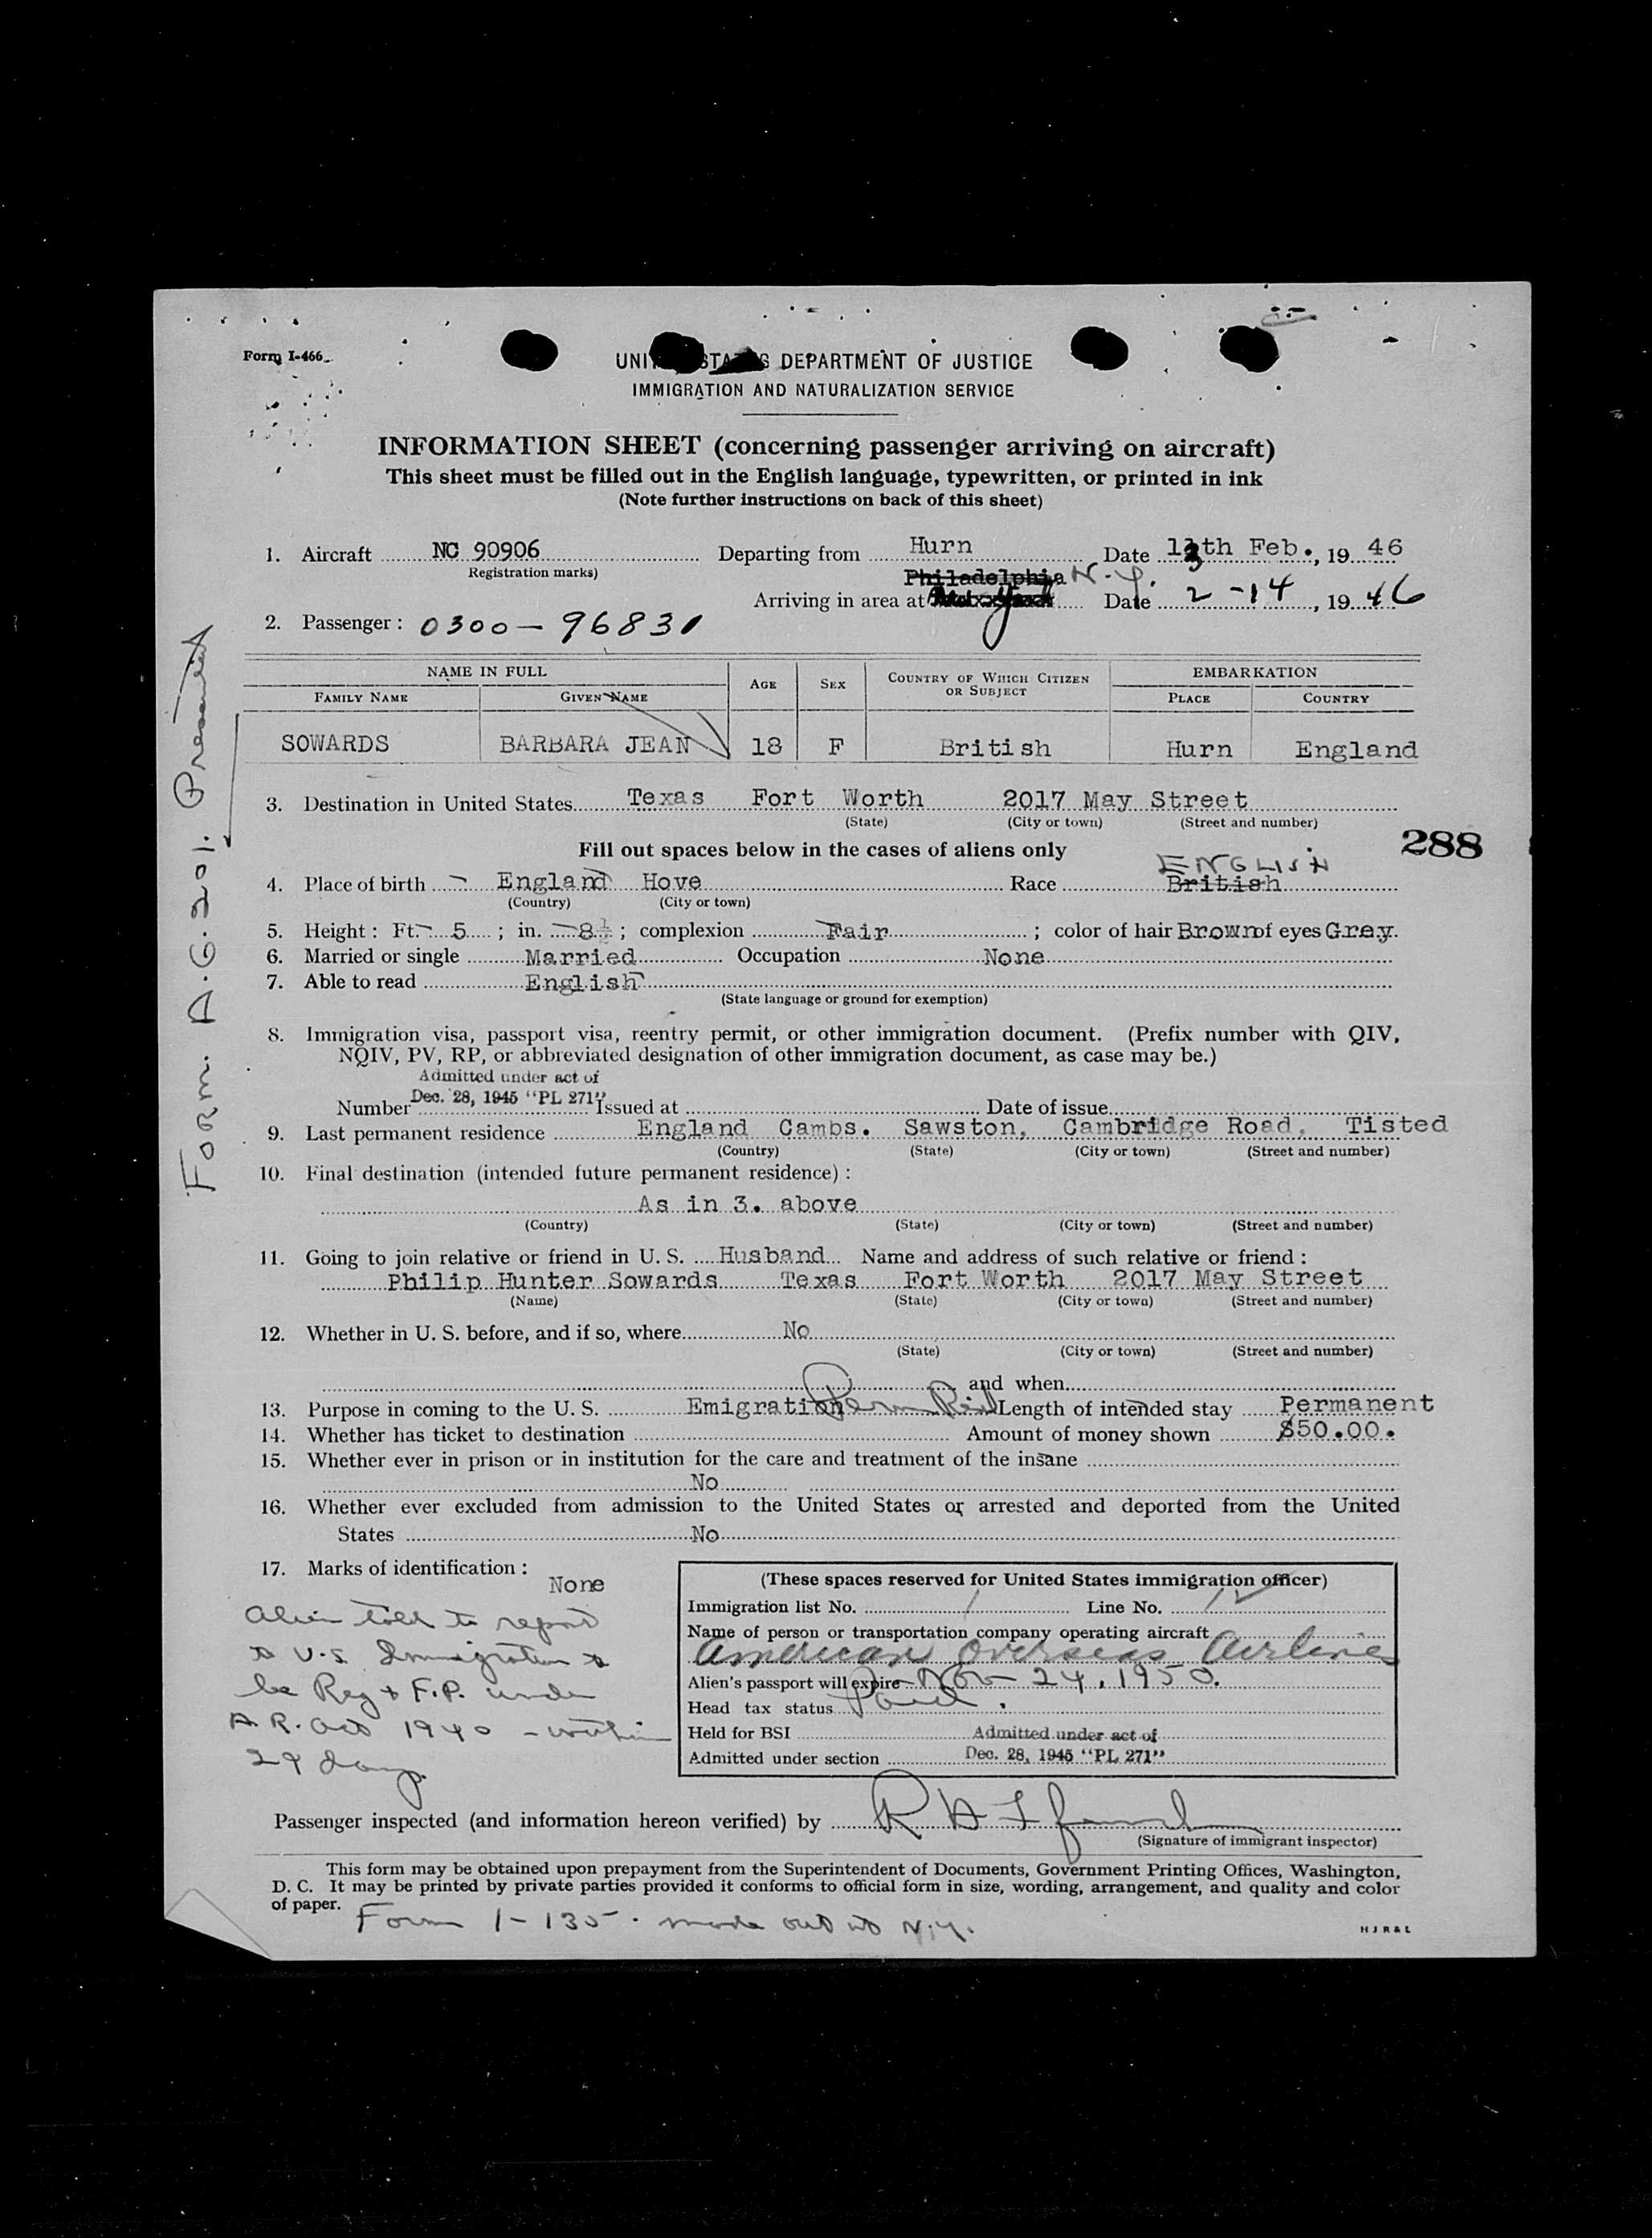 Form I-466
UNITED STATES DEPARTMENT OF JUSTICE
IMMIGRATION AND NATURALIZATION SERVICE
INFORMATION SHEET (concerning passenger arriving on aircraft)
This sheet must be filled out in the English language, typewritten, or printed in ink
(Note further instructions on back of this sheet)
1. Aircraft NC 90906 Departing from Hurn Date 13th Feb., 19 46
(Registration marks)
Philadelphia N.Y.
Arriving in area at Date 2-14, 19 46
2. Passenger: 0300-96831
NAME IN FULL AGE SEX COUNTRY OF WHICH CITIZEN OR SUBJECT EMBARKATION
FAMILY NAME GIVEN NAME PLACE COUNTRY
SOWARDS BARBARA JEAN 18 F British Hurn England
3. Destination in United States Texas Fort Worth 2017 May Street
(State) (City or town) (Street and number)
Fill out spaces below in the cases of aliens only 288
ENGLISH
4. Place of birth England Hove Race British
(Country) (City or town)
5. Height: Ft. 5; in. 8½; complexion Fair; color of hair Brown of eyes Grey.
6. Married or single Married Occupation None
7. Able to read English
(State language or ground for exemption)
8. Immigration visa, passport visa, reentry permit, or other immigration document. (Prefix number with QIV,
NQIV, PV, RP, or abbreviated designation of other immigration document, as case may be.)
Admitted under act of
Number Dec. 28, 1945 "PL 271" Issued at Date of issue
9. Last permanent residence England Cambs. Sawston, Cambridge Road, Tisted
(Country) (State) (City or town) (Street and number)
10. Final destination (intended future permanent residence):
As in 3. above
(Country) (State) (City or town) (Street and number)
11. Going to join relative or friend in U. S. Husband Name and address of such relative or friend:
Philip Hunter Sowards Texas Fort Worth 2017 May Street
(Name) (State) (City or town) (Street and number)
12. Whether in U. S. before, and if so, where No
(State) (City or town) (Street and number)
and when
13. Purpose in coming to the U. S. Emigration Perm Resd Length of intended stay Permanent
14. Whether has ticket to destination Amount of money shown $50.00.
15. Whether ever in prison or in institution for the care and treatment of the insane
No
16. Whether ever excluded from admission to the United States or arrested and deported from the United
States No
17. Marks of identification:
None
Alien told to report
to U.S. Immigration to
be Reg + F.P. under
A.R. Act 1940 - within
29 days.
(These spaces reserved for United States immigration officer)
Immigration list No. 1 Line No. 12
Name of person or transportation company operating aircraft
American Overseas Airlines
Alien's passport will expire Nov- 24, 1950.
Head tax status Paid.
Held for BSI Admitted under act of
Admitted under section Dec. 28, 1945 "PL 271"
Passenger inspected (and information hereon verified) by
(Signature of immigrant inspector)
This form may be obtained upon prepayment from the Superintendent of Documents, Government Printing Offices, Washington,
D. C. It may be printed by private parties provided it conforms to official form in size, wording, arrangement, and quality and color
of paper.
Form I-135 made out at N.Y.
H J R & L
Form. A.G. 201. Presented